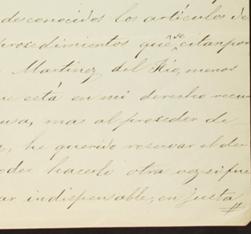 desconocidos los artículos de
procedimientos que se citan por
Martinez del Rio, menos
que está en mi derecho recu
usa, mas al proceder de
, he querido reservar el der
oder hacerlo otra vez si fue
ar indispensable, en justa